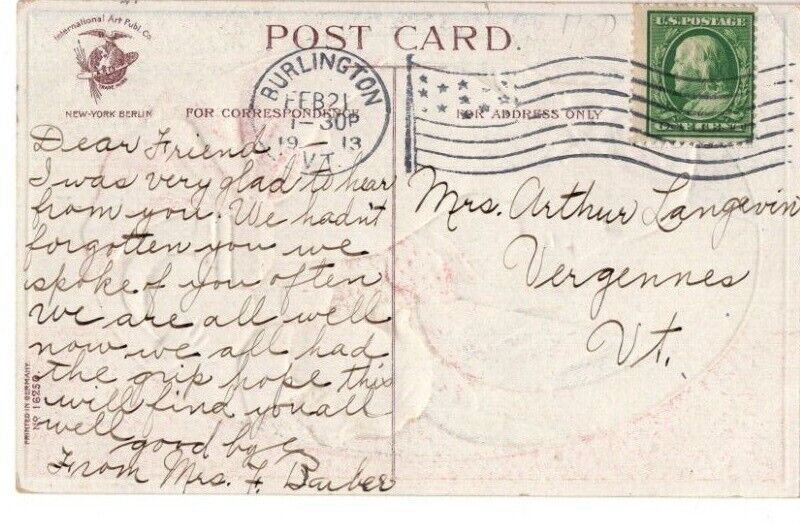 International Art Publ. Co.
TRADE MARK
NEW-YORK BERLIN
POST CARD.
FOR CORRESPONDENCE
FOR ADDRESS ONLY
BURLINGTON
FEB 21
1-30P
19-13
VT.
U.S. POSTAGE
Dear Friend
I was very glad to hear
from you. We hadn't
forgotten you we
spoke of you often
We are all well
now we all had
the grip hope this
will find you all
well
good bye
From Mrs. F. Barber
Mrs. Arthur Langevin
Vergennes
Vt.
PRINTED IN GERMANY
No 16250